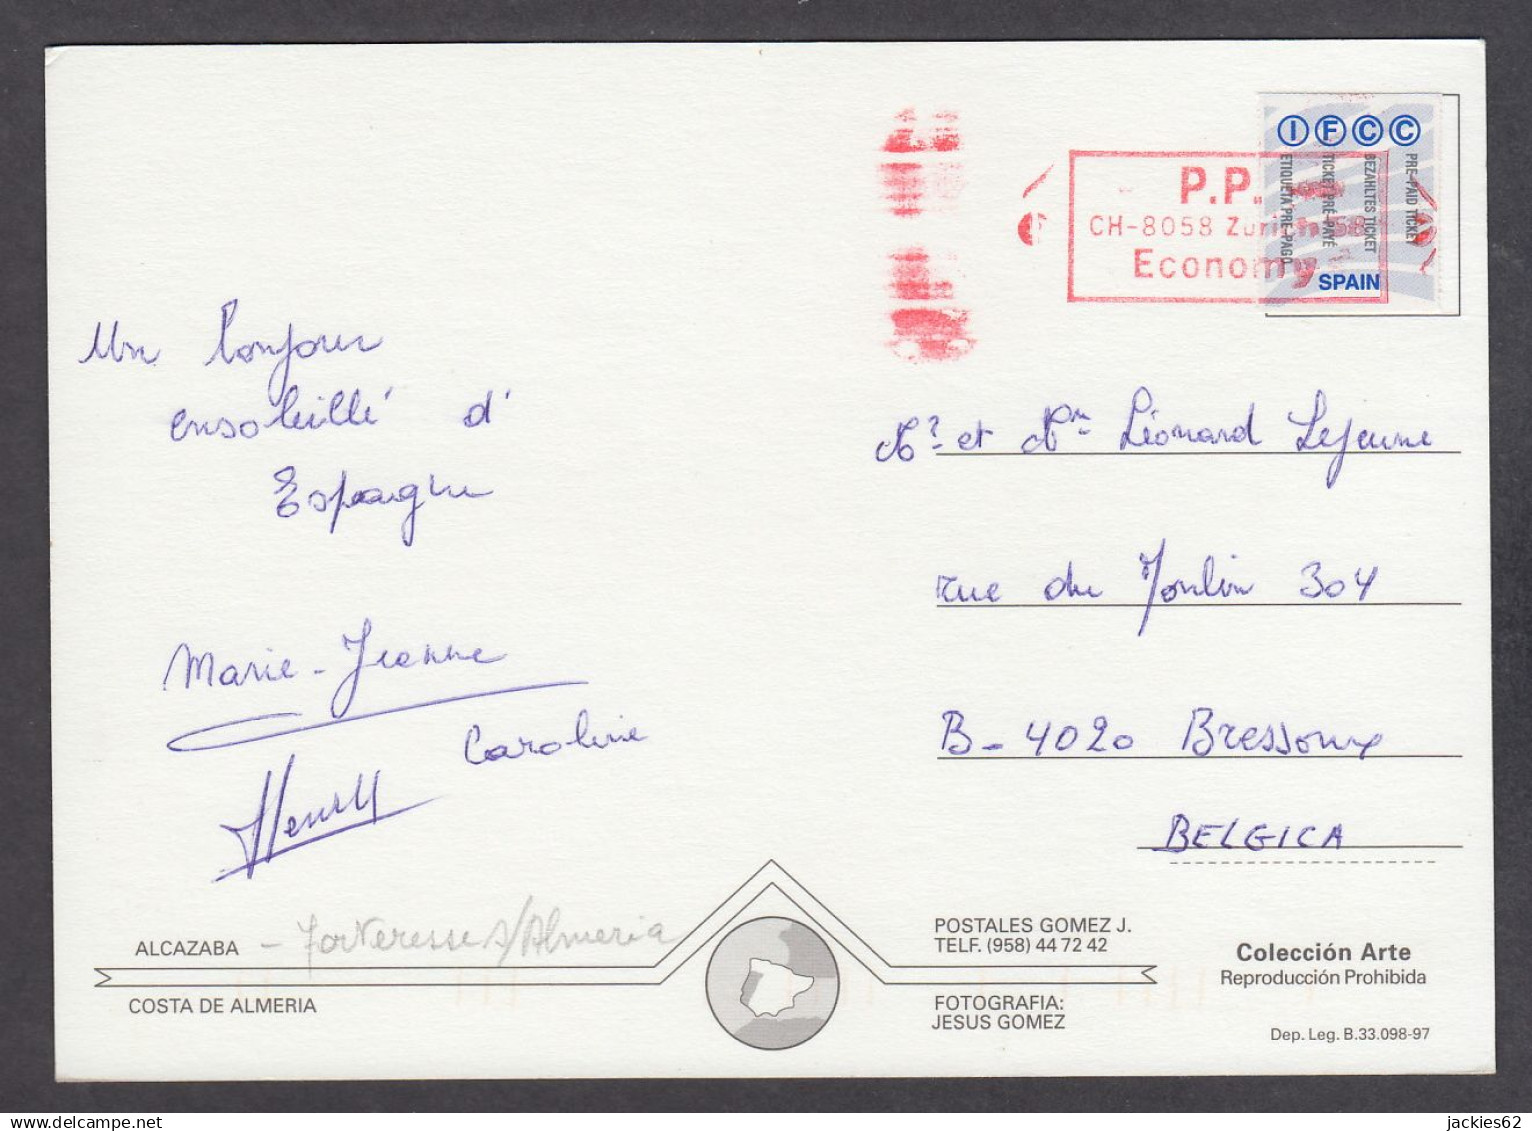 Un bonjour
ensoleillé d'
Espagne
Marie-Jeanne
Caroline
Henry
ALCAZABA - Forteresse d'Almeria
COSTA DE ALMERIA
I F C C
PRE-PAID TICKET
BEZAHLTES TICKET
TICKET PRÉ-PAYÉ
ETIQUETA PRE-PAGO
SPAIN
P.P.
CH-8058 Zürich 58
Economy
et Léonard Lejeune
rue du Moulin 304
B-4020 Bressoux
BELGICA
POSTALES GOMEZ J.
TELF. (958) 44 72 42
FOTOGRAFIA:
JESUS GOMEZ
Colección Arte
Reproducción Prohibida
Dep. Leg. B.33.098-97
delcampe.net
jackies62